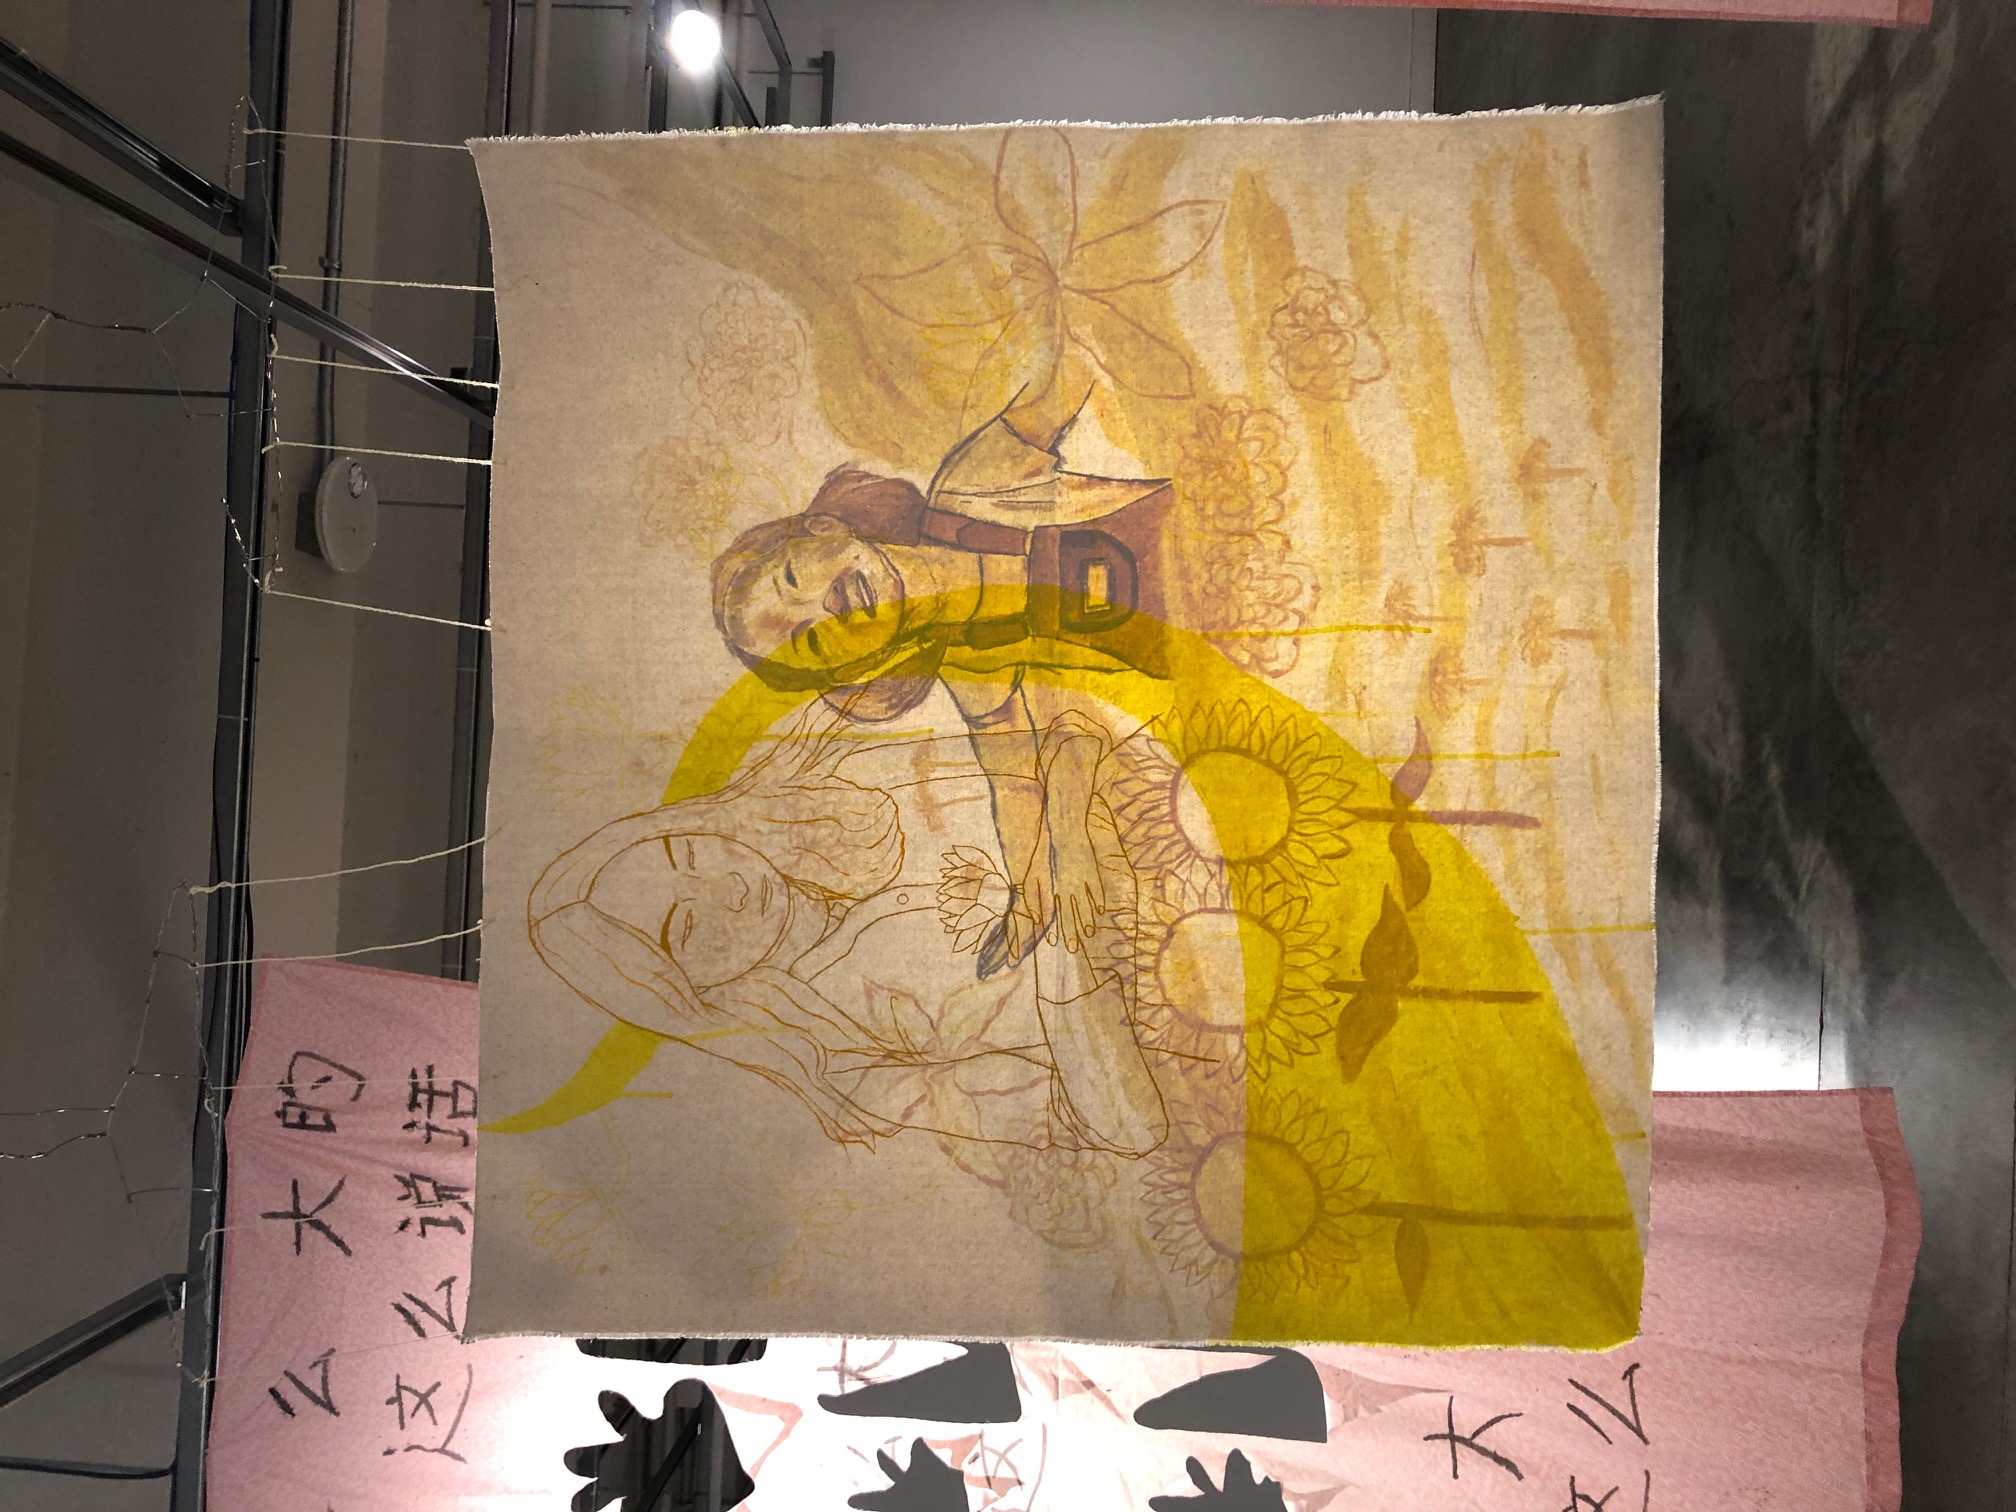 么 大 的
这 么 说 话
大
这 么